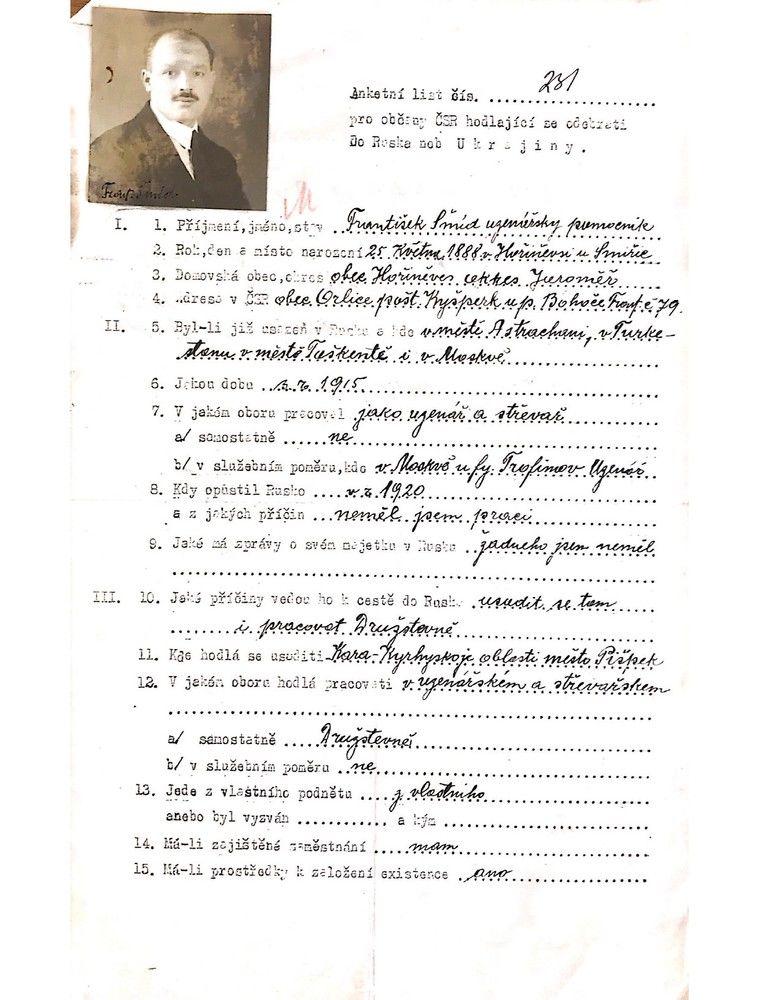 Anketní list čís. 231
pro občany ČSR hodlající se odebrati
Do Ruska neb Ukrajiny.
Frant Šmíd
I. 1. Příjmení, jméno, stav František Šmíd uzenářsky pomocnik
2. Rok, den a místo narození 25 Května 1888 v Hořiňevsi u Smiřic
3. Domovská obec, okres obec Hořiněves okkes Jaroměř
4. Adresa v ČSR obec Orlice pošt. Kyšperk u p. Boháče Frant č 79.
II. 5. Byl-li již usazen v Rusku a kde v městě Astrachani, v Turke-
stanu v městě Taškentě i v Moskvě
6. Jakou dobu z. r. 1915
7. V jakém oboru pracoval jako uzenář a střevař
a/ samostatně ne
b/ v služebním poměru, kde v Moskvě u fy. Trofimov Uzenář
8. Kdy opustil Rusko v. r. 1920
a z jakých příčin neměl jsem praci
9. Jaké má zprávy o svém majetku v Rusku žadneho jsem neměl
III. 10. Jaké příčiny vedou ho k cestě do Ruska usadit se tam
i pracovat Družstevně
11. Kde hodlá se usaditi Kara-Kyrhyskoje oblasti město Pišpek
12. V jakém oboru hodlá pracovati v uzenářském a střevařskem
a/ samostatně Družstevně
b/ v služebním poměru ne
13. Jede z vlastního podnětu z vlastniho
anebo byl vyzván a kým
14. Má-li zajištěné zaměstnání mam
15. Má-li prostředky k založení existence ano